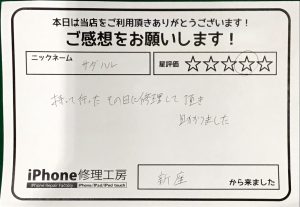 本日は当店をご利用頂きありがとうございます!
ご感想をお願いします!
ニックネーム サダハル
星評価 ☆☆☆☆☆
持って行った その日に修理して 頂き
助かりました
iPhone修理工房
iPhone Repair Factory iPhone/iPad/iPod touch
新座 から来ました